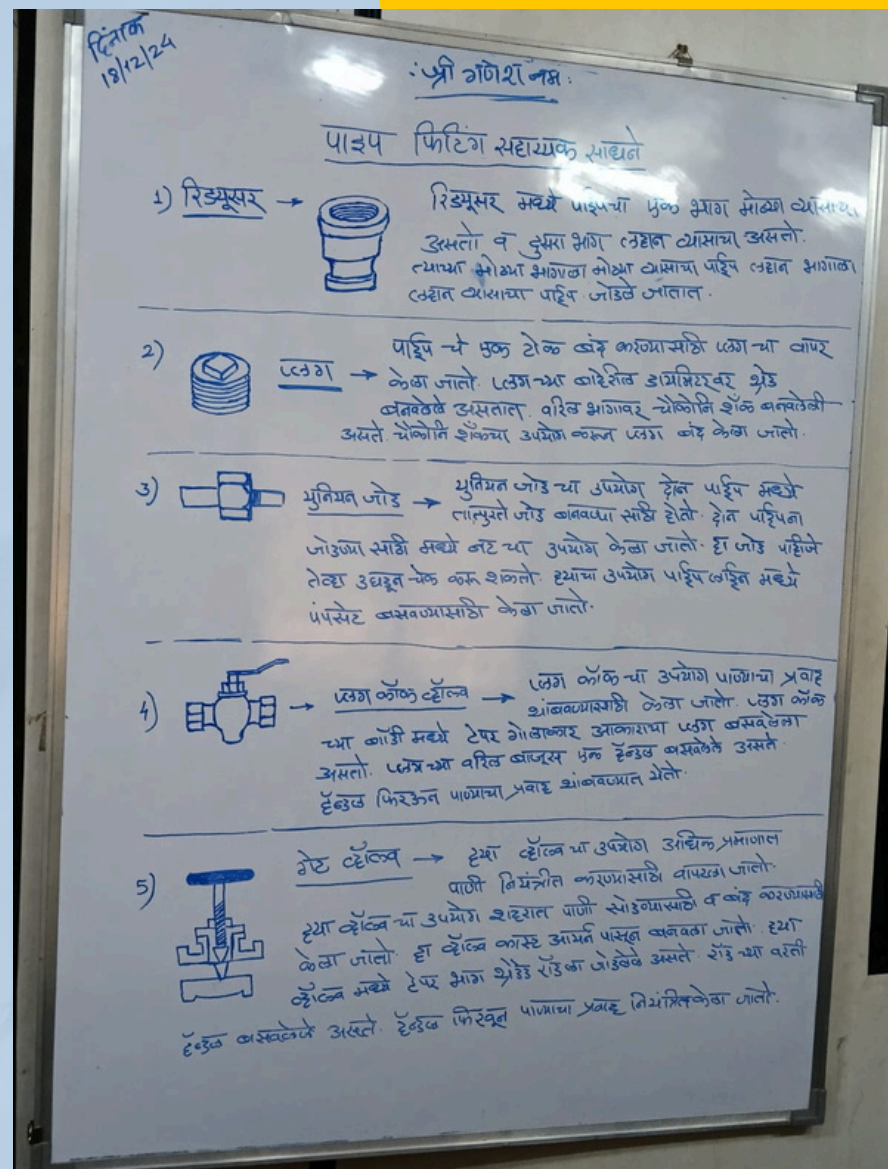 दिनांक
18/12/24
: श्री गणेश नमः
पाइप फिटिंग सहाय्यक साधने
1) रिड्यूसर → रिड्यूसर मध्ये पाईपचा एक भाग मोठ्या व्यासाचा
असतो व दुसरा भाग लहान व्यासाचा असतो.
त्याच्या मोठ्या भागाला मोठ्या व्यासाचा पाईप लहान भागाला
लहान व्यासाचा पाईप जोडले जातात.
2) प्लग → पाईप चे एक टोक बंद करण्यासाठी प्लग चा वापर
केला जातो. प्लगच्या बाहेरील डायमिटरवर थ्रेड
बनवलेले असतात. वरिल भागावर चौकोनि शँक बनवलेली
असते. चौकोनि शँकचा उपयोग करून प्लग बंद केला जातो.
3) युनियन जोड → युनियन जोड चा उपयोग दोन पाईप मध्ये
तात्पुरते जोड बनवण्या साठी होतो. दोन पाईपना
जोडण्या साठी मध्ये नट चा उपयोग केला जातो. हा जोड पाहीजे
तेव्हा उघडून चेक करू शकतो. ह्याचा उपयोग पाईप लाईन मध्ये
पंपसेट बसवण्यासाठी केला जातो.
4) → प्लग कॉक व्हॉल्व → प्लग कॉक चा उपयोग पाण्याचा प्रवाह
थांबवण्यासाठी केला जातो. प्लग कॉक
च्या बॉडी मध्ये टेपर गोलाकार आकाराचा प्लग बसवलेला
असतो. प्लगच्या वरिल बाजूस एक हॅन्डल बसवलेले असते.
हॅन्डल फिरऊन पाण्याचा प्रवाह थांबवण्यात येतो.
5) गेट व्हॉल्व → ह्या व्हॉल्व चा उपयोग अधिक प्रमाणात
पाणी नियंत्रीत करण्यासाठी वापरला जातो.
ह्या व्हॉल्व चा उपयोग शहरात पाणी सोडण्यासाठी व बंद करण्यासाठी
केला जातो. हा व्हॉल्व कास्ट आयर्न पासून बनवला जातो. ह्या
व्हॉल्व मध्ये टेपर भाग थ्रेडेड रॉडला जोडलेले असते. रॉड च्या वरती
हॅन्डल बसवलेले असते. हॅन्डल फिरवून पाण्याचा प्रवाह नियंत्रित केला जातो.